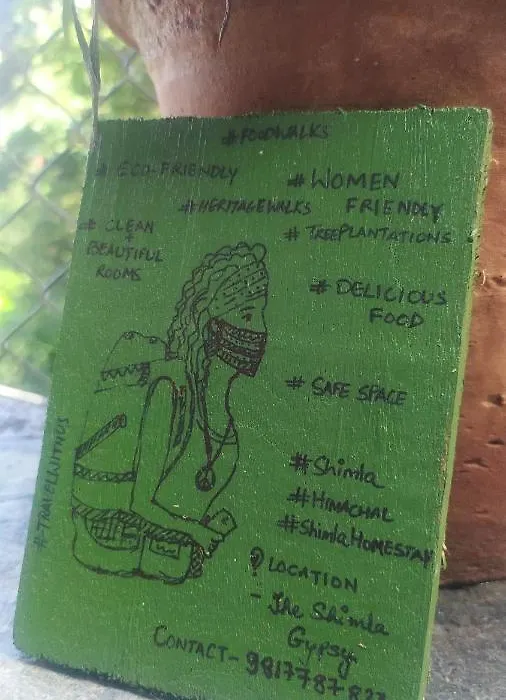 #FOODWALKS
# ECO-FRIENDLY
# WOMEN
FRIENDLY
#HERITAGEWALKS
# CLEAN
+
BEAUTIFUL
ROOMS
# TREEPLANTATIONS
# DELICIOUS
FOOD
# SAFE SPACE
#Shimla
#HIMACHAL
#ShimlaHOMESTAY
LOCATION
- The Shimla
Gypsy
CONTACT- 9817787-827
#TRAVELWITHUS